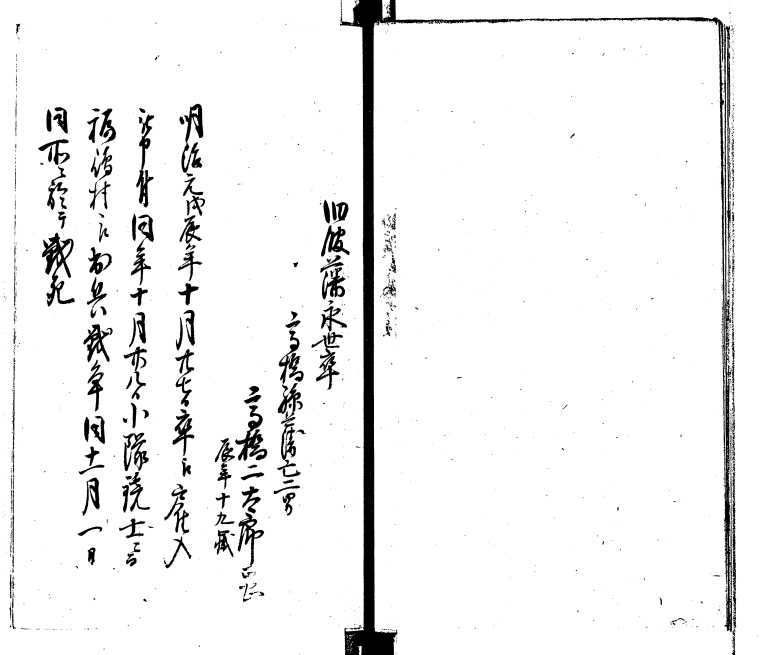 旧館藩永世卒
高橋孫蔵亡二男
高橋二太郎
辰年十九歳
明治元戊辰年十月廿七日卒ニ
同年十月廿八日小隊銃士
福島村ニ出兵戦争同十一月一日
同所ニ於テ戦死